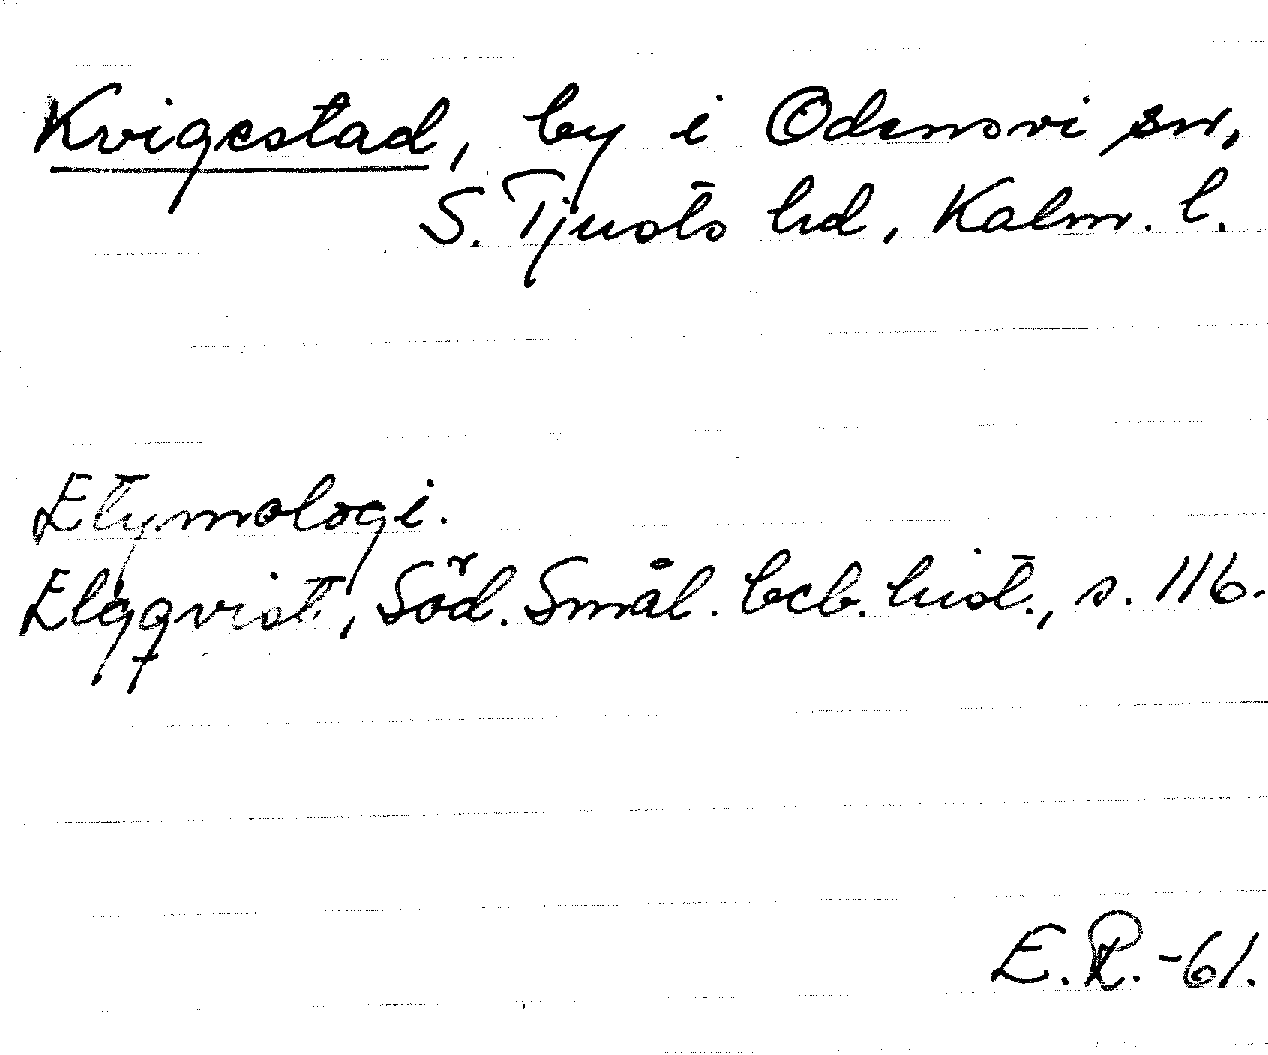 Kvigestad, by i Odensvi sn,
S. Tjusts hd, Kalm. l.
Etymologi.
Elgqvist, Söd. Smål. beb. hist., s. 116.
E. R. -61.